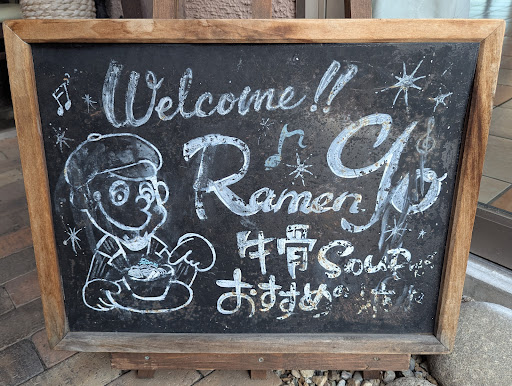 Welcome!!
Ramen 90
牛骨 Soup
おすすめ